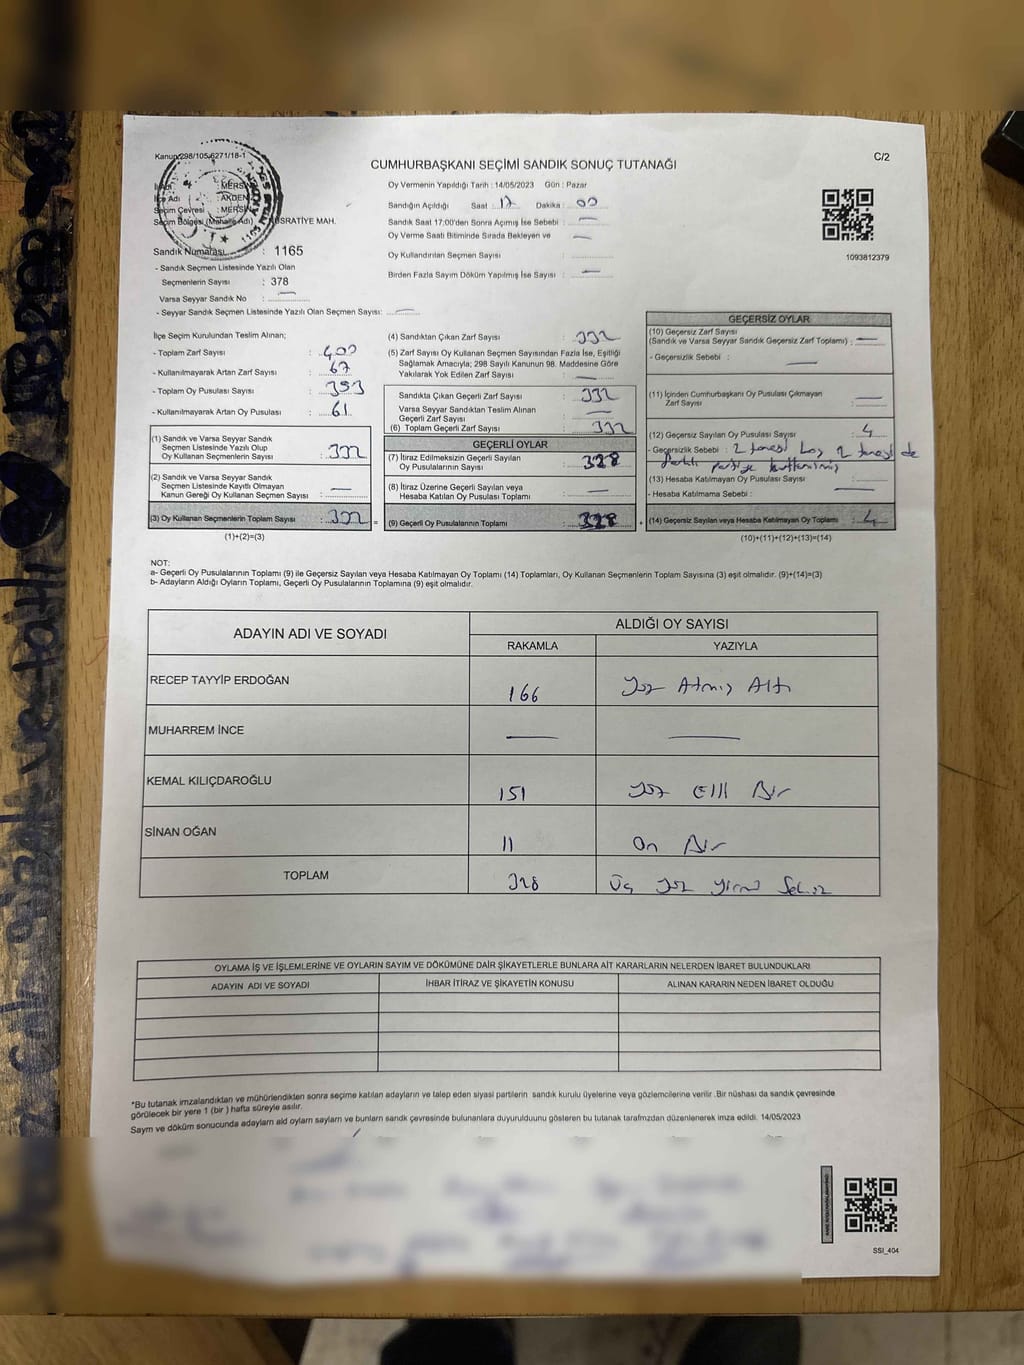 Kanun:298/105,6271/18-1
C/2
CUMHURBAŞKANI SEÇİMİ SANDIK SONUÇ TUTANAĞI
İl Adı : MERSİN
İlçe Adı : AKDENİZ
Seçim Çevresi : MERSİN
Seçim Bölgesi (Mahalle Adı) NUSRATİYE MAH.
Sandık Numarası : 1165
- Sandık Seçmen Listesinde Yazılı Olan
Seçmenlerin Sayısı : 378
Varsa Seyyar Sandık No : —
- Seyyar Sandık Seçmen Listesinde Yazılı Olan Seçmen Sayısı: —
Oy Vermenin Yapıldığı Tarih : 14/05/2023 Gün : Pazar
Sandığın Açıldığı Saat : 17 Dakika : 00
Sandık Saat 17:00'den Sonra Açımış İse Sebebi : —
Oy Verme Saati Bitiminde Sırada Bekleyen ve —
Oy Kullandırılan Seçmen Sayısı :
Birden Fazla Sayım Döküm Yapılmış İse Sayısı : —
1093812379
İlçe Seçim Kurulundan Teslim Alınan;
- Toplam Zarf Sayısı : 400
- Kullanılmayarak Artan Zarf Sayısı : 67
- Toplam Oy Pusulası Sayısı : 393
- Kullanılmayarak Artan Oy Pusulası : 61
(1) Sandık ve Varsa Seyyar Sandık
Seçmen Listesinde Yazılı Olup
Oy Kullanan Seçmenlerin Sayısı : 332
(2) Sandık ve Varsa Seyyar Sandık
Seçmen Listesinde Kayıtlı Olmayan
Kanun Gereği Oy Kullanan Seçmen Sayısı : —
(3) Oy Kullanan Seçmenlerin Toplam Sayısı : 332 =
(1)+(2)=(3)
(4) Sandıktan Çıkan Zarf Sayısı : 332
(5) Zarf Sayısı Oy Kullanan Seçmen Sayısından Fazla İse, Eşitliği
Sağlamak Amacıyla; 298 Sayılı Kanunun 98. Maddesine Göre
Yakılarak Yok Edilen Zarf Sayısı : —
Sandıkta Çıkan Geçerli Zarf Sayısı : 332
Varsa Seyyar Sandıktan Teslim Alınan
Geçerli Zarf Sayısı : —
(6) Toplam Geçerli Zarf Sayısı : 332
GEÇERLİ OYLAR
(7) İtiraz Edilmeksizin Geçerli Sayılan
Oy Pusulalarının Sayısı : 328
(8) İtiraz Üzerine Geçerli Sayılan veya
Hesaba Katılan Oy Pusulası Toplamı : —
(9) Geçerli Oy Pusulalarının Toplamı : 328 +
GEÇERSİZ OYLAR
(10) Geçersiz Zarf Sayısı
(Sandık ve Varsa Seyyar Sandık Geçersiz Zarf Toplamı) : —
- Geçersizlik Sebebi : —
(11) İçinden Cumhurbaşkanı Oy Pusulası Çıkmayan
Zarf Sayısı : —
(12) Geçersiz Sayılan Oy Pusulası Sayısı : 4
- Geçersizlik Sebebi : 2 tanesi boş 2 tanesi de
farklı partiye kullanılmış
(13) Hesaba Katılmayan Oy Pusulası Sayısı : —
- Hesaba Katılmama Sebebi :
(14) Geçersiz Sayılan veya Hesaba Katılmayan Oy Toplamı : 4
(10)+(11)+(12)+(13)=(14)
NOT:
a- Geçerli Oy Pusulalarının Toplamı (9) ile Geçersiz Sayılan veya Hesaba Katılmayan Oy Toplamı (14) Toplamları, Oy Kullanan Seçmenlerin Toplam Sayısına (3) eşit olmalıdır. (9)+(14)=(3)
b- Adayların Aldığı Oyların Toplamı, Geçerli Oy Pusulalarının Toplamına (9) eşit olmalıdır.
ADAYIN ADI VE SOYADI
ALDIĞI OY SAYISI
RAKAMLA YAZIYLA
RECEP TAYYİP ERDOĞAN 166 Yüz Atmış Altı
MUHARREM İNCE — —
KEMAL KILIÇDAROĞLU 151 Yüz Elli Bir
SİNAN OĞAN 11 On Bir
TOPLAM 328 Üç Yüz Yirmi Sekiz
OYLAMA İŞ VE İŞLEMLERİNE VE OYLARIN SAYIM VE DÖKÜMÜNE DAİR ŞİKAYETLERLE BUNLARA AİT KARARLARIN NELERDEN İBARET BULUNDUKLARI
ADAYIN ADI VE SOYADI İHBAR İTİRAZ VE ŞİKAYETİN KONUSU ALINAN KARARIN NEDEN İBARET OLDUĞU
*Bu tutanak imzalandıktan ve mühürlendikten sonra seçime katılan adayların ve talep eden siyasi partilerin sandık kurulu üyelerine veya gözlemcilerine verilir .Bir nüshası da sandık çevresinde
görülecek bir yere 1 (bir ) hafta süreyle asılır.
Sayım ve döküm sonucunda adayların aid oyların sayların ve bunların sandık çevresinde bulunanlara duyurulduunu gösteren bu tutanak tarafımızdan düzenlenerek imza edildi. 14/05/2023
SSI_404